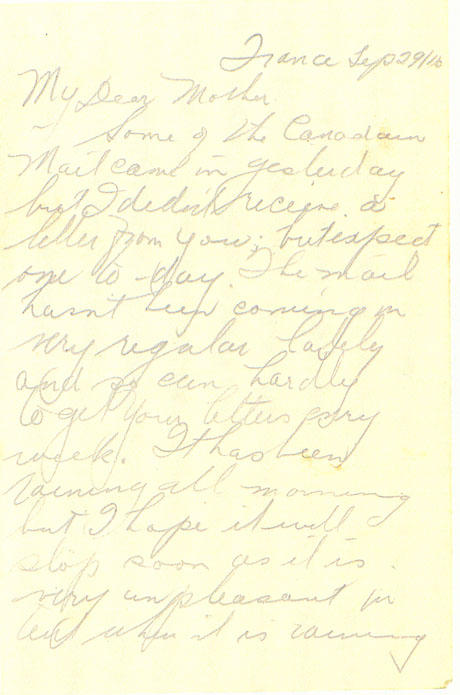 France Sep 29/16
My Dear Mother
Some of the Canadian
Mail came in yesterday
but I didn't receive a
letter from you, but expect
one to-day. The mail
hasn't been coming in
very regular lately
and so can hardly
to get your letters every
week. It has been
raining all morning
but I hope it will
stop soon as it is
very unpleasant in
when it is raining